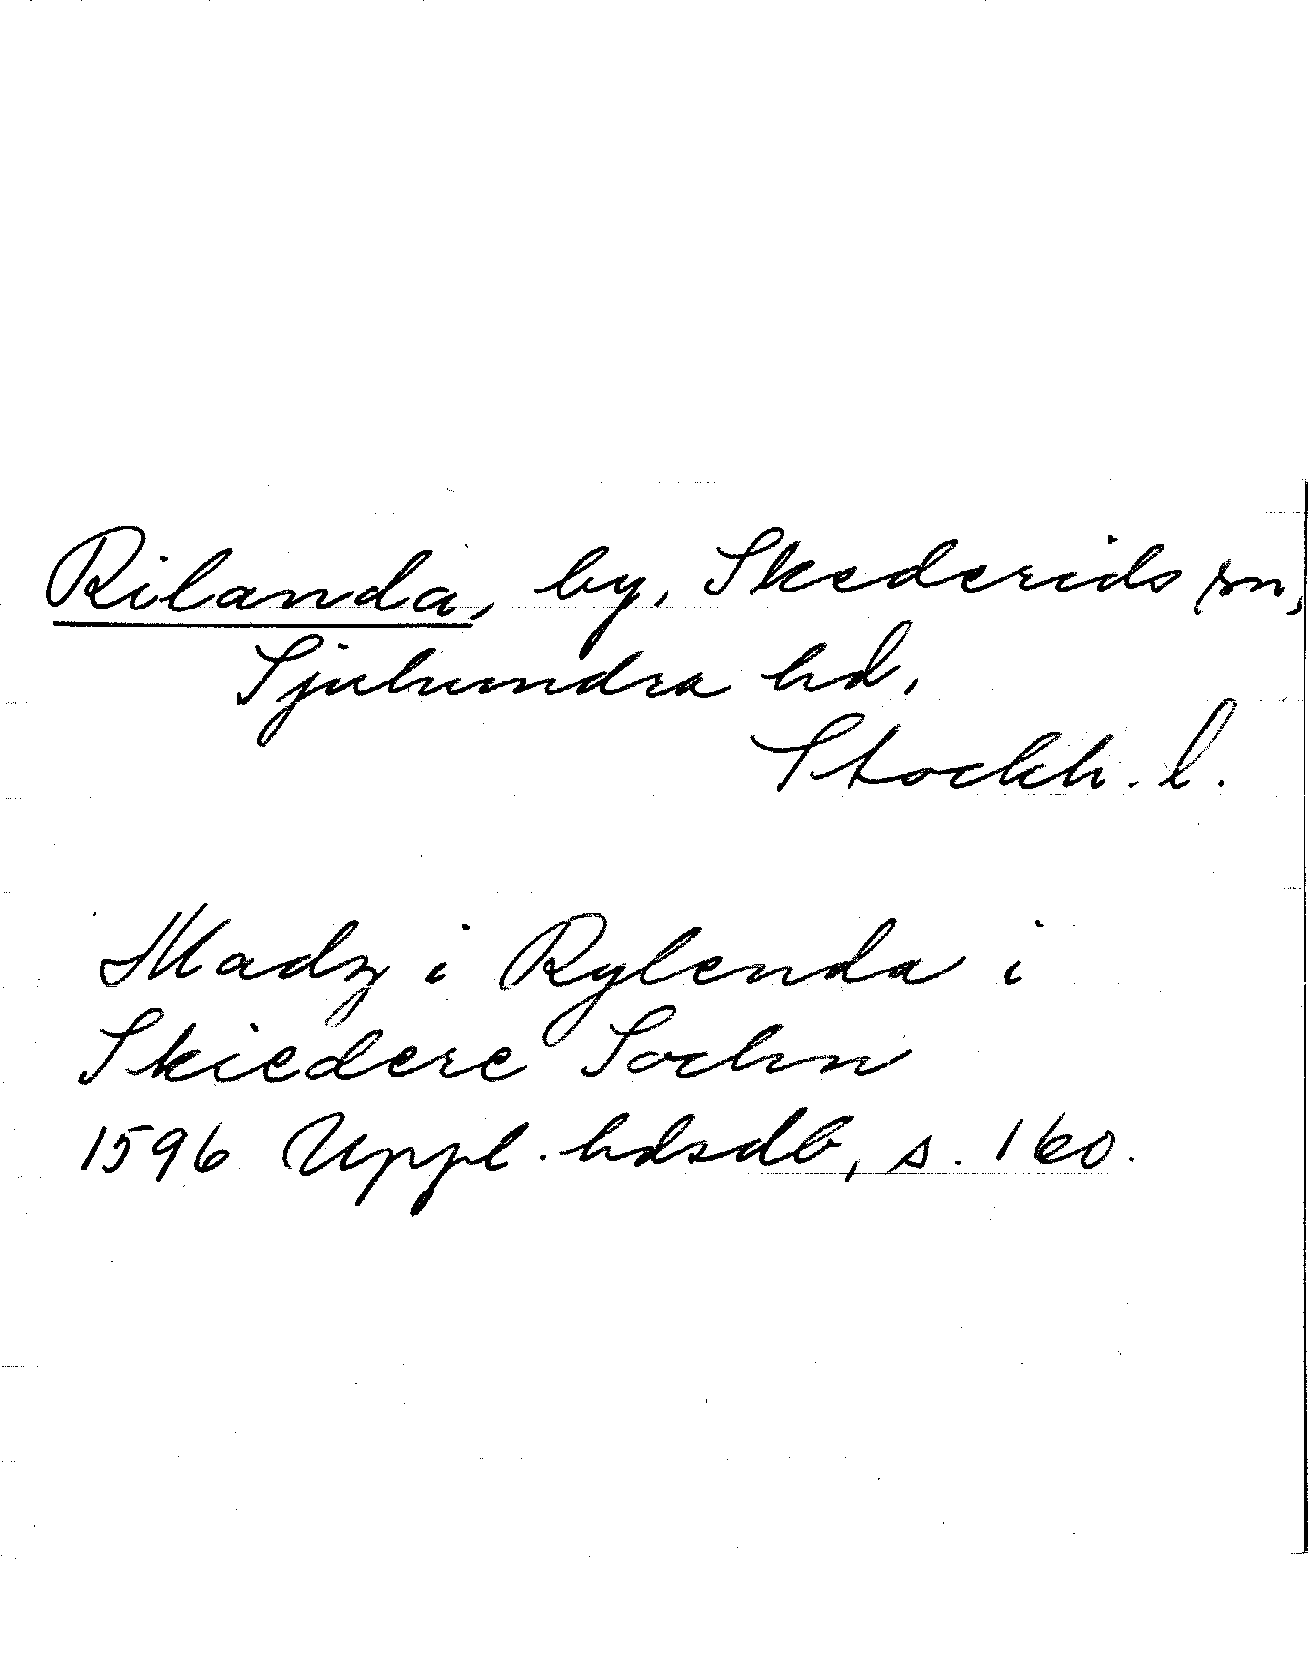 Rilanda, by, Skederids sn,
Sjuhundra hd,
Stockh. l.
Madz i Rylenda i
Skiedere Sochn
1596 Uppl. hdsdb, s. 160.